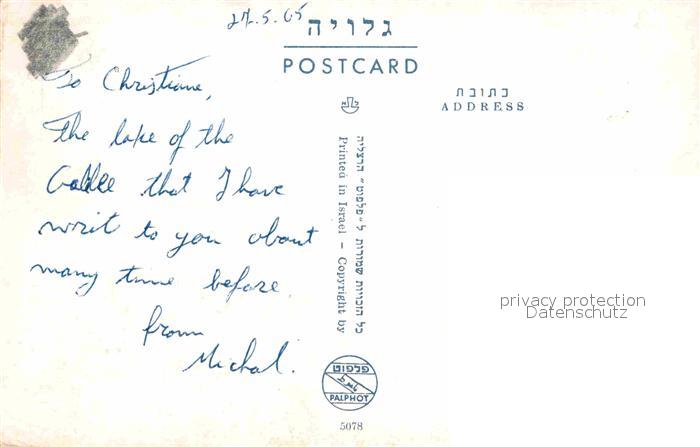 27.5.65
גלויה
POSTCARD
כתובת
ADDRESS
To Christiane,
The lake of the
Galilee that I have
writ to you about
many time before.
from
Michal.
כל הזכויות שמורות ל״פלפוט״ הרצליה
Printed in Israel – Copyright by
פלפוט
PALPHOT
5078
privacy protection
Datenschutz